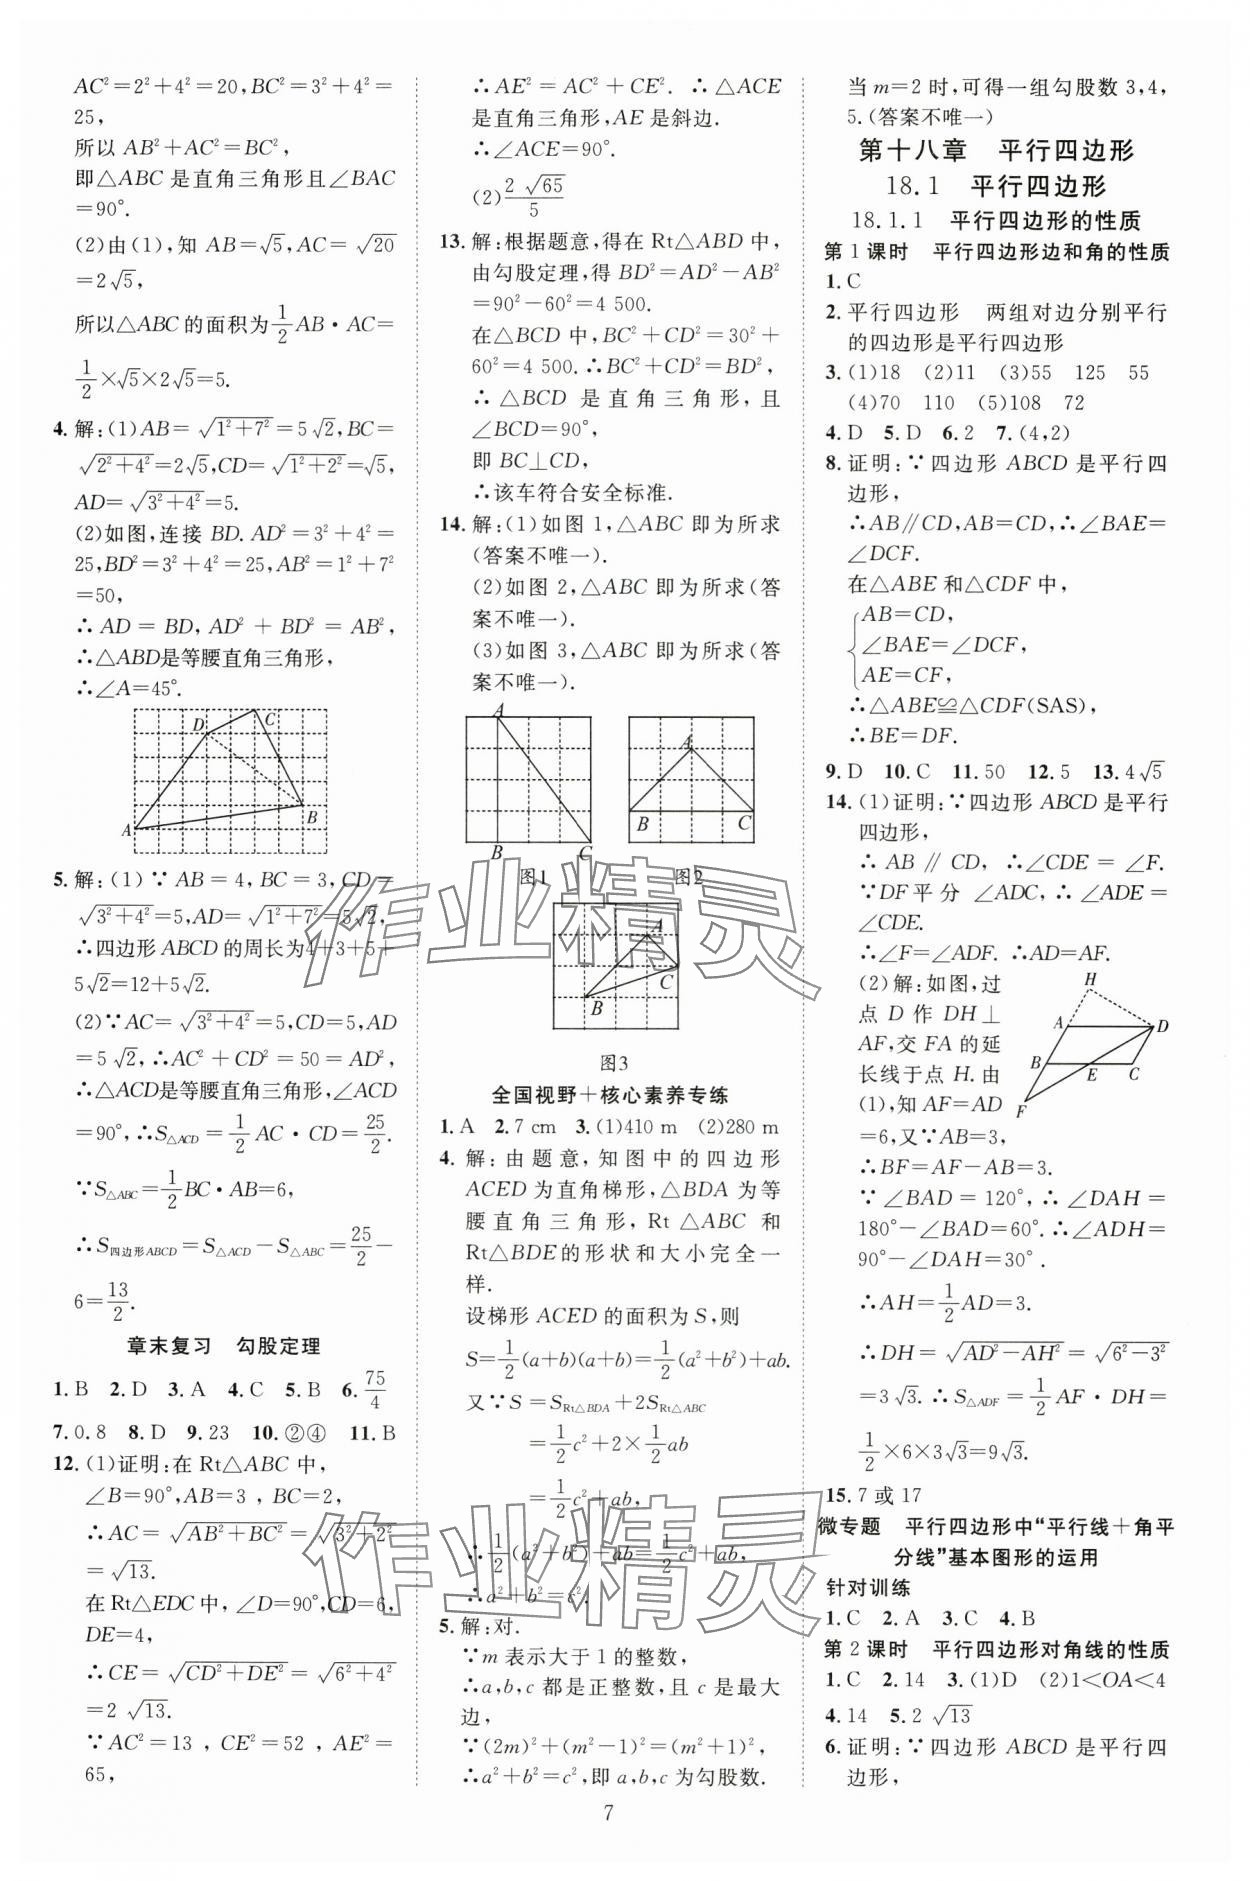 AC²=2²+4²=20,BC²=3²+4²=
25,
所以 AB²+AC²=BC²,
即△ABC 是直角三角形且∠BAC
=90°.
(2)由(1),知 AB=√5,AC=√20
=2√5,
所以△ABC 的面积为1/2AB·AC=
1/2×√5×2√5=5.
4. 解:(1)AB=√(1²+7²)=5√2,BC=
√(2²+4²)=2√5,CD=√(1²+2²)=√5,
AD=√(3²+4²)=5.
(2)如图,连接 BD. AD²=3²+4²=
25,BD²=3²+4²=25,AB²=1²+7²
=50,
∴AD=BD,AD²+BD²=AB²,
∴△ABD是等腰直角三角形,
∴∠A=45°.
D
C
A
B
5. 解:(1)∵AB=4,BC=3,CD=
√(3²+4²)=5,AD=√(1²+7²)=5√2,
∴四边形 ABCD 的周长为4+3+5+
5√2=12+5√2.
(2)∵AC=√(3²+4²)=5,CD=5,AD
=5√2,∴AC²+CD²=50=AD²,
∴△ACD是等腰直角三角形,∠ACD
=90°,∴S△ACD=1/2AC·CD=25/2.
∵S△ABC=1/2BC·AB=6,
∴S四边形ABCD=S△ACD-S△ABC=25/2-
6=13/2.
章末复习 勾股定理
1. B 2. D 3. A 4. C 5. B 6. 75/4
7. 0.8 8. D 9. 23 10. ②④ 11. B
12. (1)证明:在 Rt△ABC 中,
∠B=90°,AB=3,BC=2,
∴AC=√(AB²+BC²)=√(3²+2²)
=√13.
在 Rt△EDC 中,∠D=90°,CD=6,
DE=4,
∴CE=√(CD²+DE²)=√(6²+4²)
=2√13.
∵AC²=13,CE²=52,AE²=
65,
∴AE²=AC²+CE². ∴△ACE
是直角三角形,AE 是斜边.
∴∠ACE=90°.
(2)2√65/5
13. 解:根据题意,得在 Rt△ABD 中,
由勾股定理,得 BD²=AD²-AB²
=90²-60²=4 500.
在△BCD 中,BC²+CD²=30²+
60²=4 500.∴BC²+CD²=BD²,
∴△BCD 是直角三角形,且
∠BCD=90°,
即 BC⊥CD,
∴该车符合安全标准.
14. 解:(1)如图 1,△ABC 即为所求
(答案不唯一).
(2)如图 2,△ABC 即为所求(答
案不唯一).
(3)如图 3,△ABC 即为所求(答
案不唯一).
A
B
C
图1
A
B
C
图2
A
C
B
图3
全国视野+核心素养专练
1. A 2. 7 cm 3. (1)410 m (2)280 m
4. 解:由题意,知图中的四边形
ACED 为直角梯形,△BDA 为等
腰直角三角形,Rt△ABC 和
Rt△BDE的形状和大小完全一
样.
设梯形 ACED 的面积为 S,则
S=1/2(a+b)(a+b)=1/2(a²+b²)+ab.
又∵S=SRt△BDA+2SRt△ABC
=1/2c²+2×1/2ab
=1/2c²+ab,
∴1/2(a²+b²)+ab=1/2c²+ab,
∴a²+b²=c².
5. 解:对.
∵m 表示大于 1 的整数,
∴a,b,c 都是正整数,且 c 是最大
边,
∵(2m)²+(m²-1)²=(m²+1)²,
∴a²+b²=c²,即 a,b,c 为勾股数.
当 m=2 时,可得一组勾股数 3,4,
5.(答案不唯一)
第十八章 平行四边形
18.1 平行四边形
18.1.1 平行四边形的性质
第 1 课时 平行四边形边和角的性质
1. C
2. 平行四边形 两组对边分别平行
的四边形是平行四边形
3. (1)18 (2)11 (3)55 125 55
(4)70 110 (5)108 72
4. D 5. D 6. 2 7. (4,2)
8. 证明:∵四边形 ABCD 是平行四
边形,
∴AB∥CD,AB=CD,∴∠BAE=
∠DCF.
在△ABE 和△CDF 中,
AB=CD,
∠BAE=∠DCF,
AE=CF,
∴△ABE≌△CDF(SAS),
∴BE=DF.
9. D 10. C 11. 50 12. 5 13. 4√5
14. (1)证明:∵四边形 ABCD 是平行
四边形,
∴AB∥CD,∴∠CDE=∠F.
∵DF平分∠ADC,∴∠ADE=
∠CDE.
∴∠F=∠ADF. ∴AD=AF.
(2)解:如图,过
点 D 作 DH⊥
AF,交 FA 的延
长线于点 H. 由
(1),知 AF=AD
H
A
D
B
E
C
F
=6,又∵AB=3,
∴BF=AF-AB=3.
∵∠BAD=120°,∴∠DAH=
180°-∠BAD=60°.∴∠ADH=
90°-∠DAH=30°.
∴AH=1/2AD=3.
∴DH=√(AD²-AH²)=√(6²-3²)
=3√3.∴S△ADF=1/2AF·DH=
1/2×6×3√3=9√3.
15. 7 或 17
微专题 平行四边形中“平行线+角平
分线”基本图形的运用
针对训练
1. C 2. A 3. C 4. B
第 2 课时 平行四边形对角线的性质
1. C 2. 14 3. (1)D (2)1<OA<4
4. 14 5. 2√13
6. 证明:∵四边形 ABCD 是平行四
边形,
7
作业精灵
作业精灵